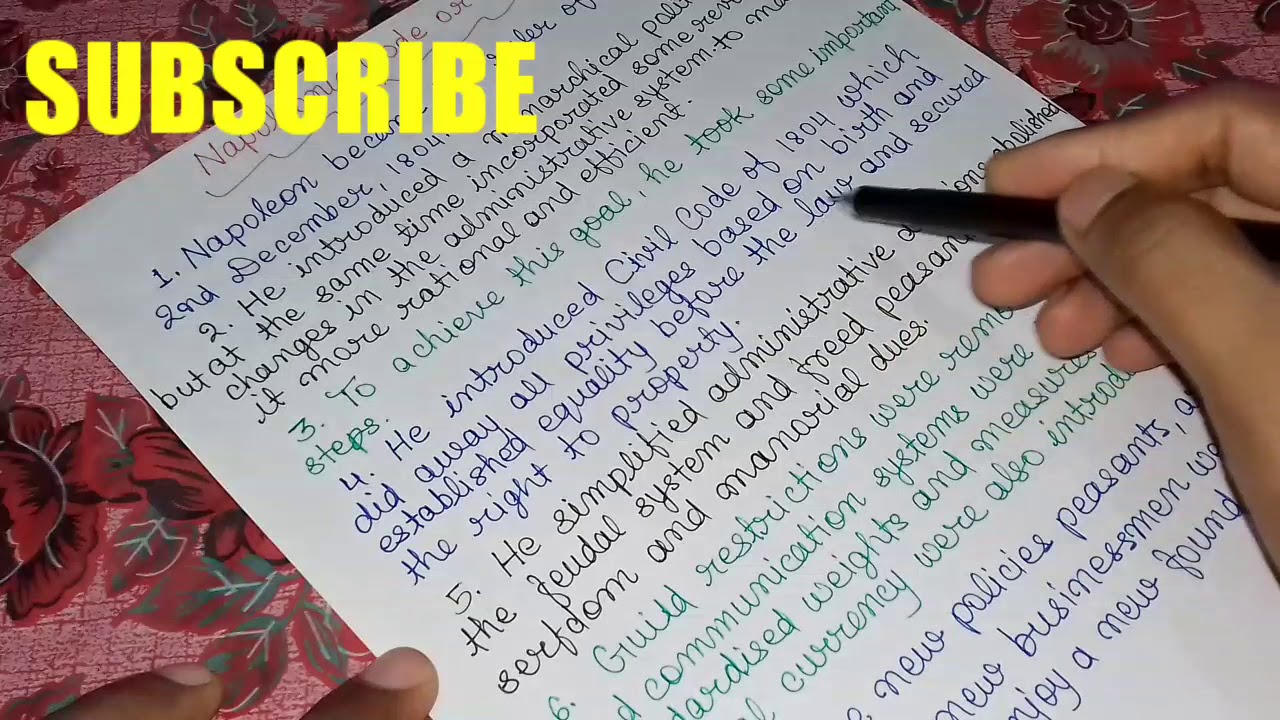 SUBSCRIBE
Code or
1. Napoleon became ruler of
2nd December, 1804.
2. He introduced a monarchical
but at the same time incorporated some
changes in the administrative system to
it more rational and efficient.
3. To achieve this goal, he took some important
steps.
4. He introduced Civil Code of 1804 which
did away all privileges based on birth and
established equality before the law and secured
the right to property.
5. He simplified administrative abolished
the feudal system and freed
serfdom and manorial dues.
6. Guild restrictions were
communication systems were
weights and measures
currency were also
new policies peasants,
new businessmen
a new found